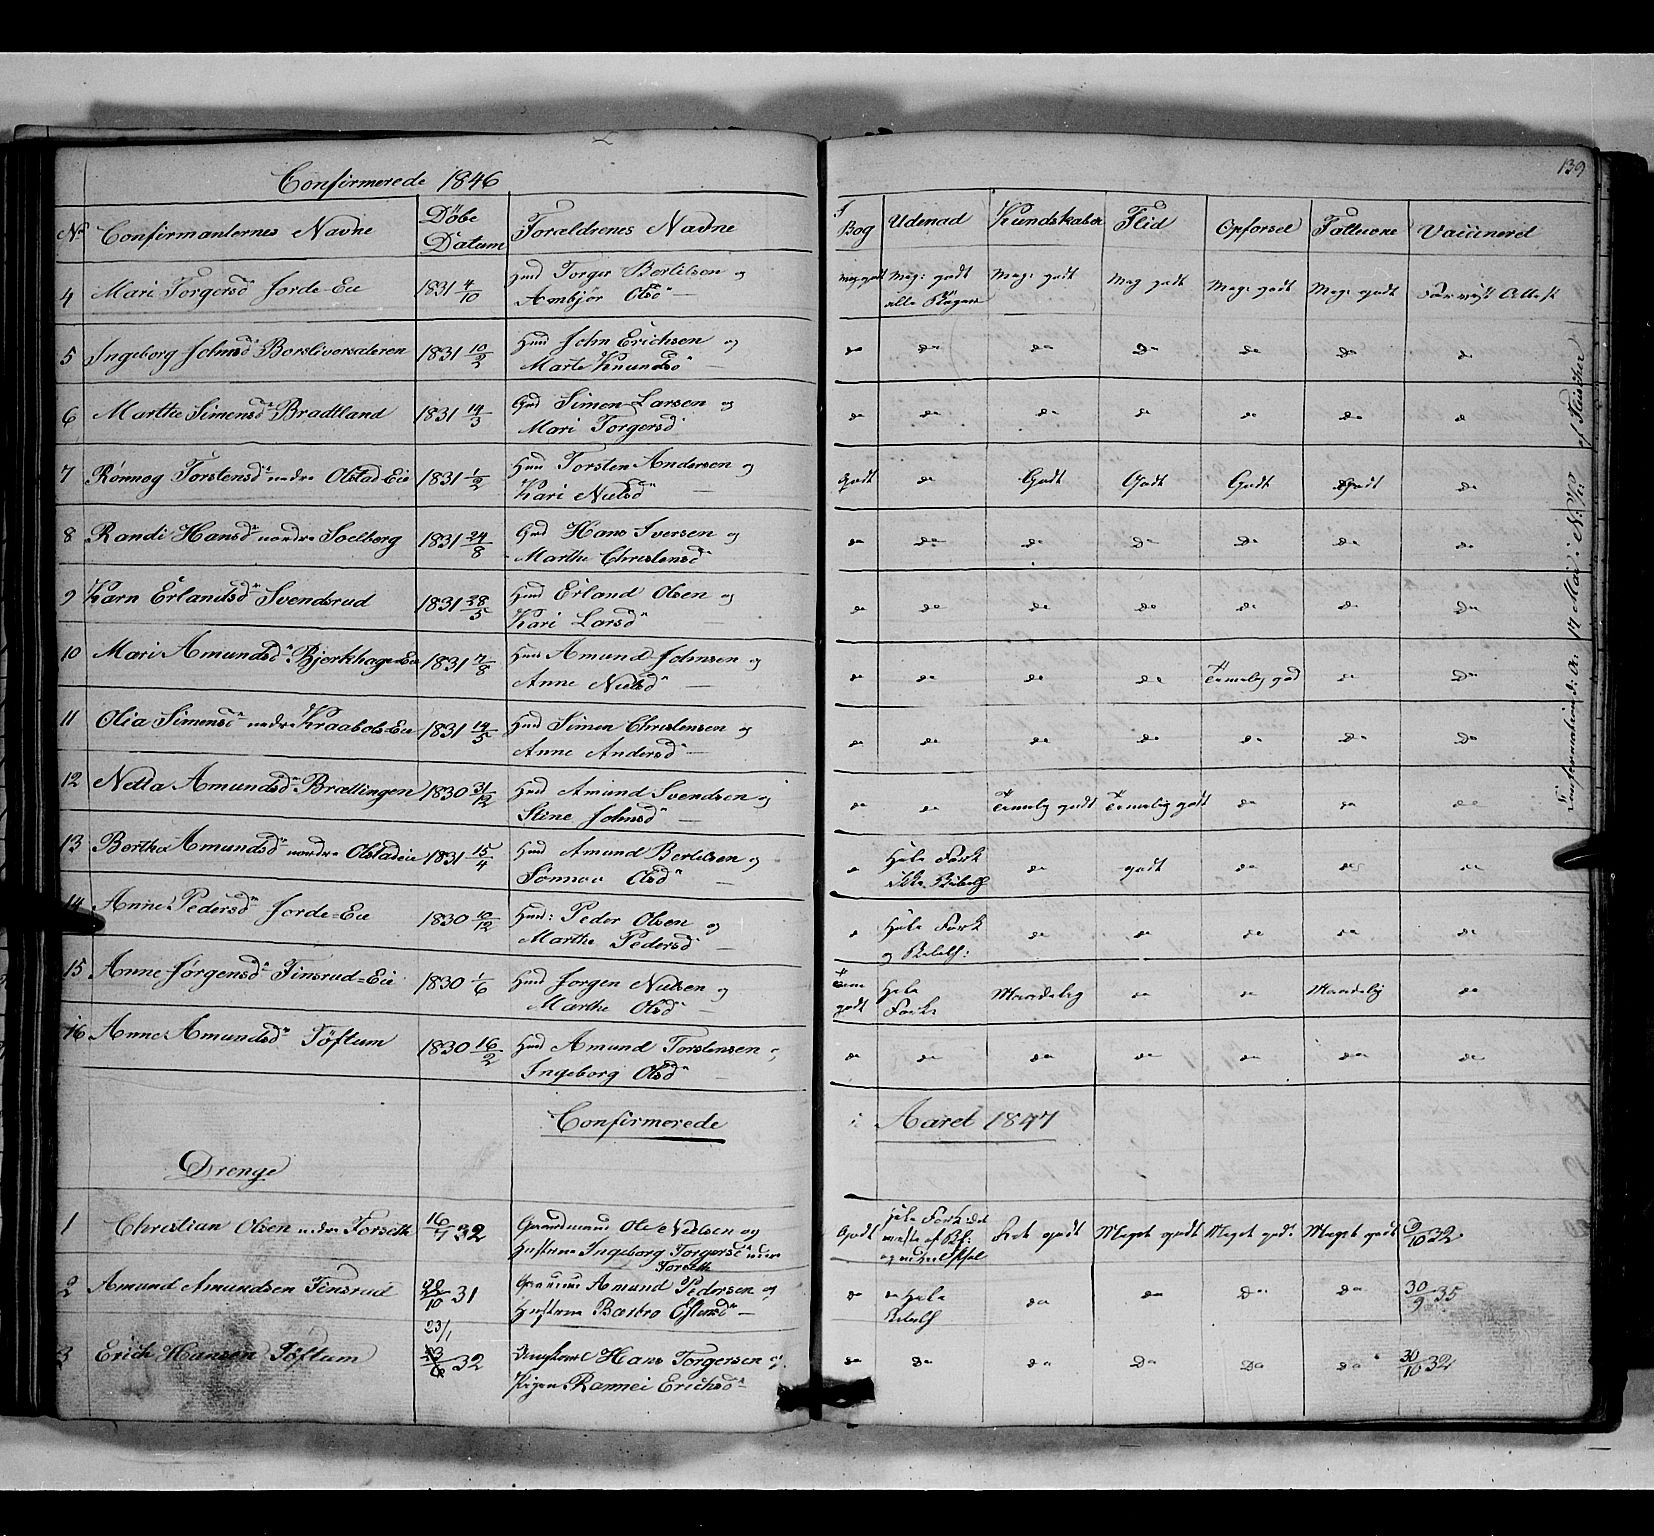 139
Confirmerede 1846
No Confirmanternes Navne Döbe Datum Forældrenes Navne I Bog Udenad Kundskaber Flid Opförsel Fatteevne Vaccineret
4 Mari Torgersd Jorde-Eie 1831 4/10 Hmd Torger Bertelsen og meg godt Meg: godt Meg: godt Meg godt Meg: godt Meg: godt
Ambjör Olsd — alle Böger
5 Ingeborg Johnsd Borsliversæteren 1831 10/2 Hmd John Erichsen og do do do do do do do
Marte Knundsd —
6 Marthe Simensd Bradtland 1831 14/3 Gmd Simen Larsen og do do do do do do do
Mari Torgersd
7 Rönnog Torstensd nedre Olstad-Eie 1831 1/2 Hmd Torsten Andersen og Godt do Godt Godt Godt Godt do
Kari Nielsd —
8 Randi Hansd nordre Soelberg 1831 24/8 Gmd Hans Iversen og do do do do do do do
Marthe Christensd
9 Karn Erlandsd Svendsrud 1831 28/5 Hmd Erland Olsen og do do do do do do do
Kari Larsd —
10 Mari Amundsd Bjerkhage-Eie 1831 7/8 Hmd Amund Johnsen og do do do do Temelig god do do
Anne Nielsd —
11 Olia Simensd nedre Kraaböls-Eie 1831 14/5 Hmd Simen Christensen og do do do do do do do
Anne Andersd —
12 Netta Amundsd Brættingen 1830 31/12 Hmd Amund Svendsen og do do Temelig godt Temelig godt do do do
Stine Johnsd —
13 Berthe Amundsd nordre Olstadeie 1831 15/4 Hmd Amund Bertelsen og do Hele Fork do godt do do do
Sönnov Olsd — ikke Bibelh
14 Anne Pedersd Jorde-Eie 1830 10/12 Hmd: Peder Olsen og do Hele Fork do do do do do
Marthe Pedersd — og Bibelh:
15 Anne Jörgensd Finsrud-Eie 1830 1/6 Hmd Jorgen Nielsen og Tem godt Hele Fork: Maadelig do do Maadelig do
Marthe Olsd —
16 Anne Amundsd Töftum 1830 16/2 Hmd Amund Torstensen og do do do do do do do
Ingeborg Olsd —
Confirmerede i Aaret 1847
Drenge
1 Christian Olsen nedre Forseth 16/7 32 Gaardmand Ole Nielsen og Godt Hele Fork: det Ret godt Meget godt Meget god: Meget godt 9/10 32
Hustrue Ingeborg Torgersd nedre meste af Bib:
Forseth
2 Amund Amundsen Finsrud 22/10 31 Amund Pedersen og do do Hele do do do do 30/9 35
Hustrue Barbro Bibelh
23/1
3 Erich Hansen Töftum 32 Hans Torgersen og do do do do do do 30/10 32
Pigen Rannei Erichsd
Confirmationen d: A: 17 Mai i No: 70 af